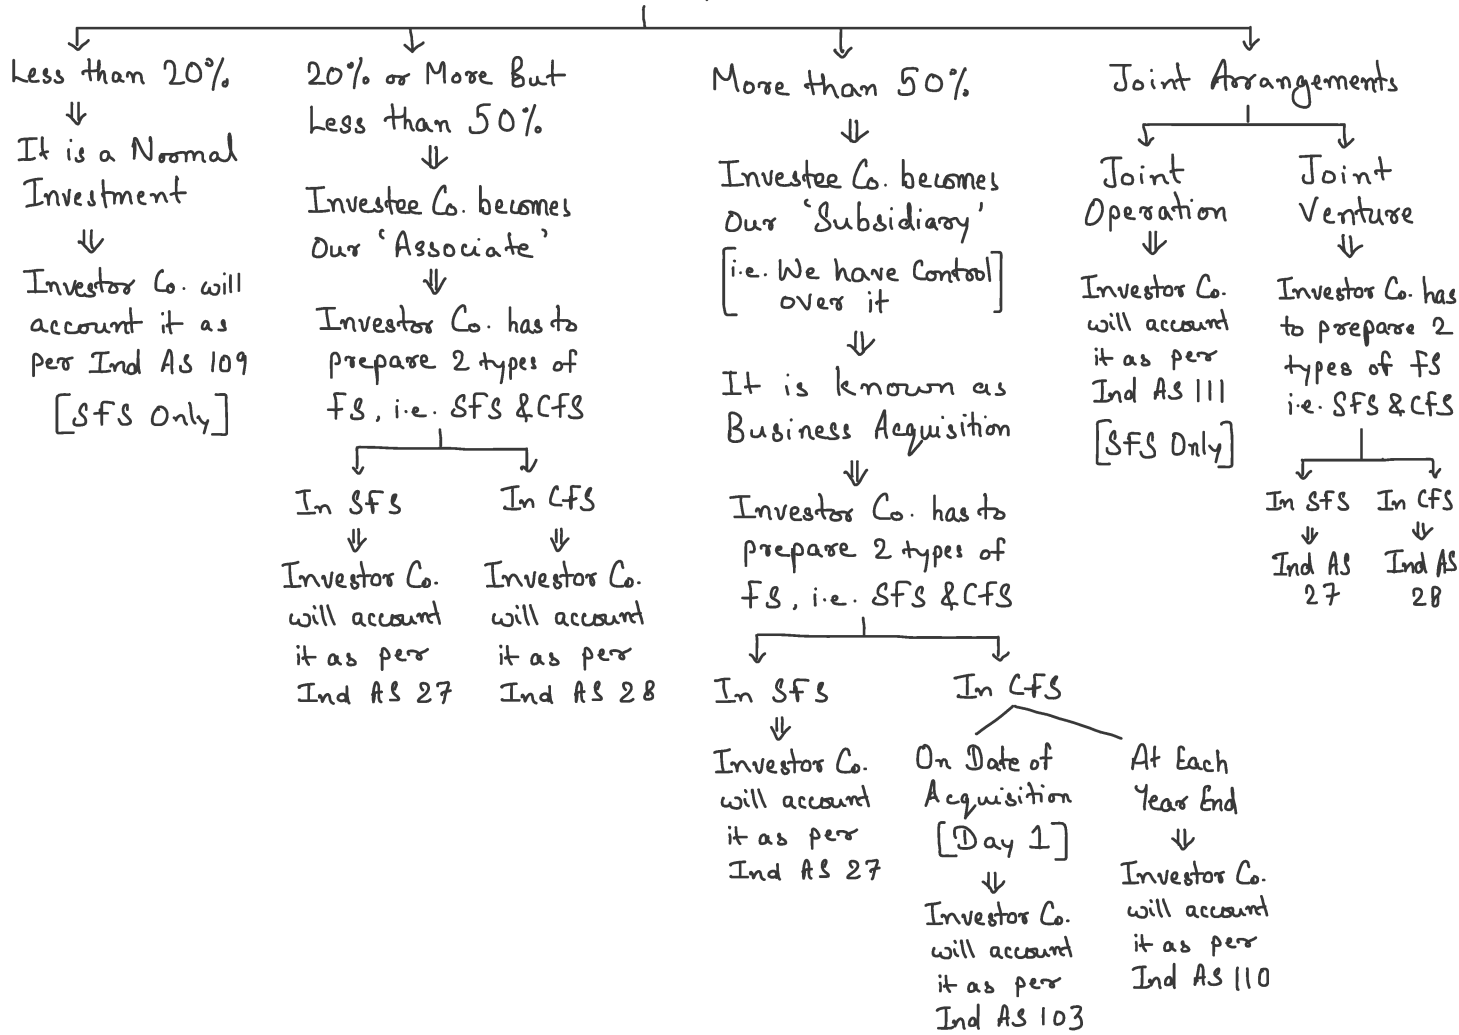 Less than 20%
It is a Normal
Investment
Investor Co. will
account it as
per Ind AS 109
[SFS Only]
20% or More But
Less than 50%
Investee Co. becomes
Our 'Associate'
Investor Co. has to
prepare 2 types of
FS, i.e. SFS & CFS
In SFS
Investor Co.
will account
it as per
Ind AS 27
In CFS
Investor Co.
will account
it as per
Ind AS 28
More than 50%
Investee Co. becomes
Our 'Subsidiary'
[i.e. We have Control
over it]
It is known as
Business Acquisition
Investor Co. has to
prepare 2 types of
FS, i.e. SFS & CFS
In SFS
Investor Co.
will account
it as per
Ind AS 27
In CFS
On Date of
Acquisition
[Day 1]
Investor Co.
will account
it as per
Ind AS 103
At Each
Year End
Investor Co.
will account
it as per
Ind AS 110
Joint Arrangements
Joint
Operation
Investor Co.
will account
it as per
Ind AS 111
[SFS Only]
Joint
Venture
Investor Co. has
to prepare 2
types of FS
i.e. SFS & CFS
In SFS
Ind AS
27
In CFS
Ind AS
28